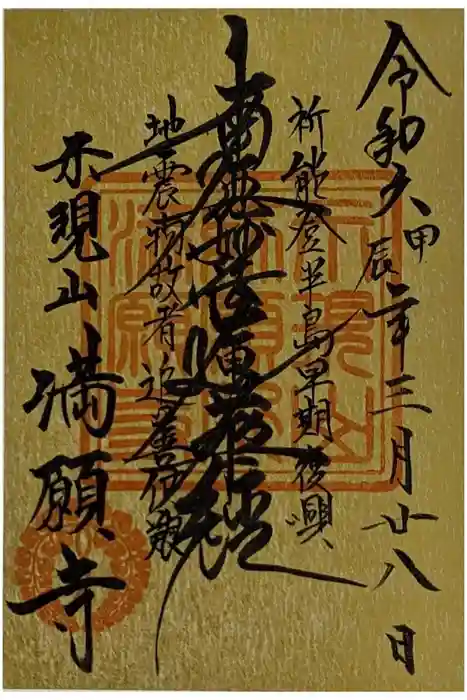 令和六甲辰年三月廿八日
祈能登半島早期復興
南無妙法蓮華経
地震物故者追善供養
示現山
満願寺